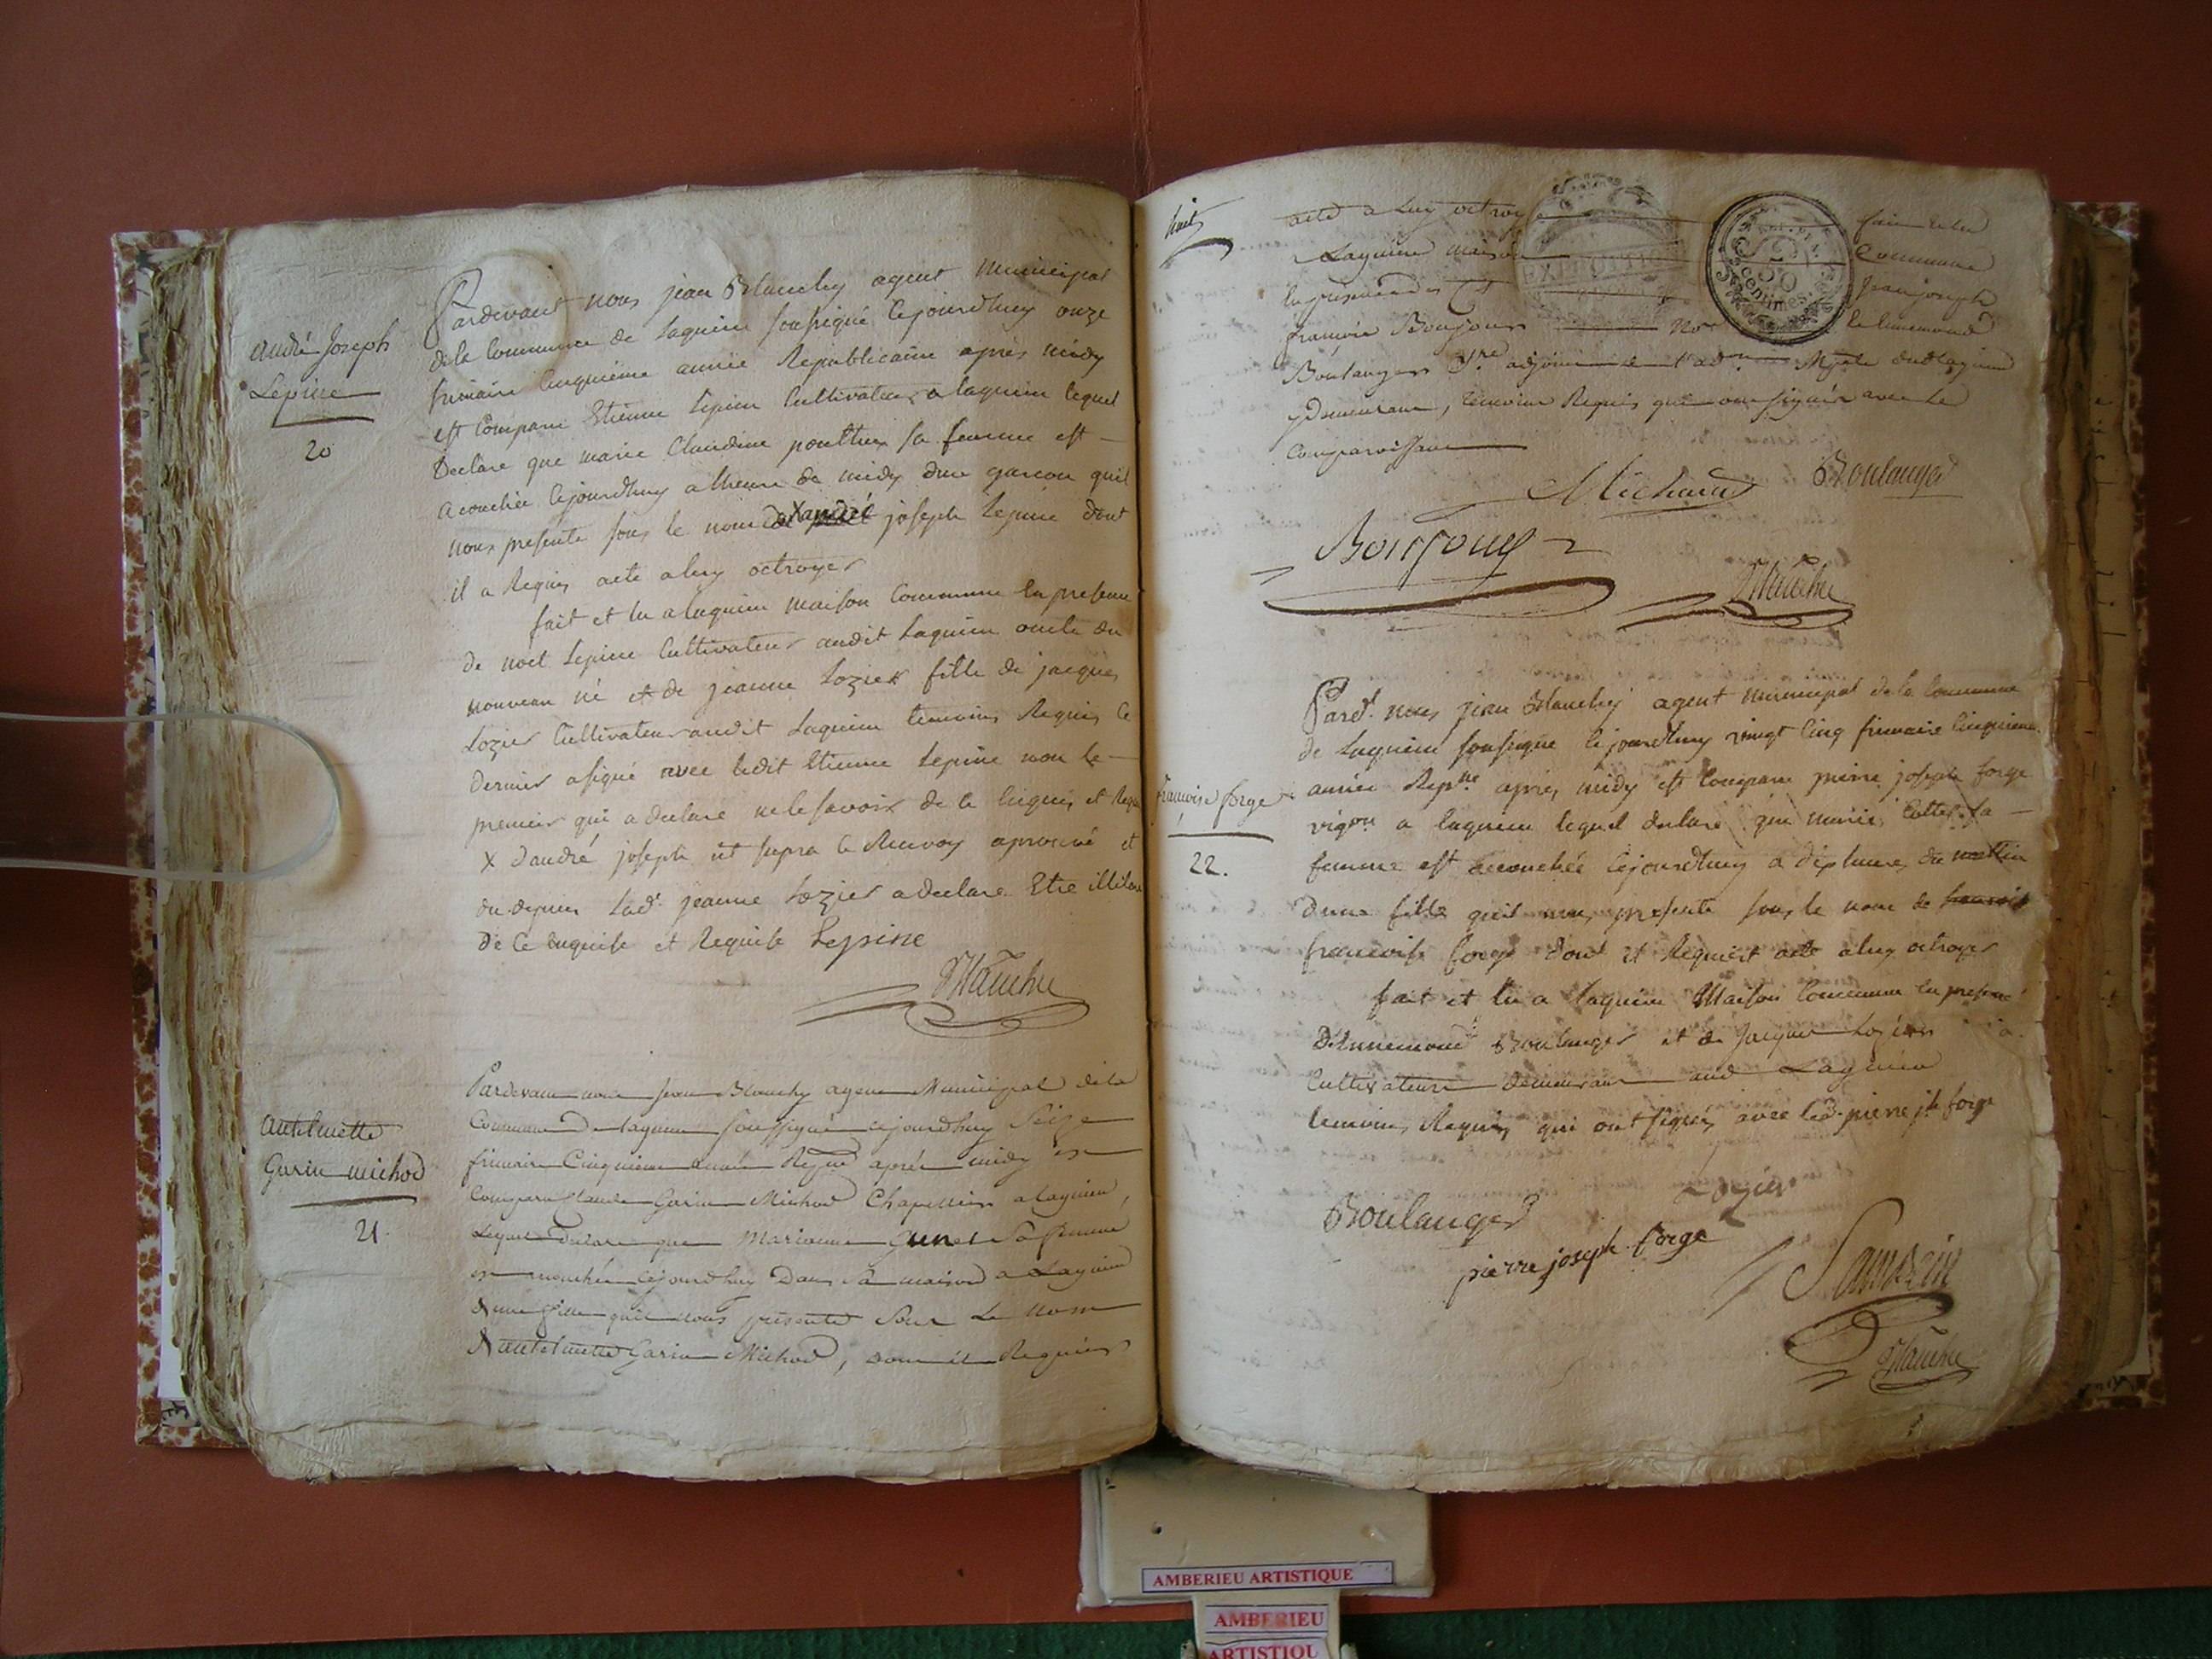 André Joseph
Lepine
20
Pardevant nous jean Blanchy agent municipal
de la Commune de Lagnieu soussigné Cejourdhuy onze
frimaire Cinquième année Republicaine après midy
est Comparu Etienne Lepine Cultivateur a lagnieu lequel
Declare que marie Claudine sa femme est
acouchée Cejourdhuy a lheure de midy dun garcon quil
nous presente sous le nom X joseph Lepine dont
il a Requis acte a luy octroyer
fait et lu a lagnieu maison Commune en presence
de noel Lepine Cultivateur audit Lagnieu oncle du
nouveau né et de jeanne Lozier fille de jacques
Lozier Cultivateur audit Lagnieu temoins Requis Ce
dernier a signé avec ledit Etienne Lepine non le
premier qui a declaré ne le savoir de ce enquis et Requis
X dandré joseph ut supra le Renvoy aprouvé et
du depuis Lad. jeanne Lozier a declaré Etre illiteré
de Ce enquise et Requise Lepine
Blanchy
antelmette
Garin michod
21.
Pardevant nous Jean Blanchy agent Municipal dela
Commune De lagnieu soussigné cejourdhuy Seize
frimaire Cinquieme année après midy est
Comparu Claude Garin Michod Chapellier a lagnieu,
Lequel declare que Marianne sa femme
est acouchée cejourdhuy Dans sa maison a Lagnieu
dune fille quil nous presente sous Le nom
Dantelmette Garin Michod, dont il a Requis
huit
acte a Luy octroyé fait et lu a
Lagnieu maison Commune
en presence de Jean joseph
francois Bonjour
Boulanger adjoint dud lagnieu
y Demeurant, temoins Requis qui ont signés avec le
Comparoissant
Michaud Boulanger
Bonjour
Blanchy
françoise forge
22.
Pard.t nous jean Blanchy agent municipal de la Commune
de Lagnieu soussigné Cejourdhuy vingt Cinq frimaire Cinquieme
année Rep.ne après midy est Comparu pierre joseph forge
vigon a lagnieu lequel declare que marie sa
femme est acouchée Cejourdhuy a dix heures du mattin
Dune fille quil nous presente sous le nom de
francoise forge dont il Requiert acte a luy octroyer
fait et lu a lagnieu Maison Commune en presence
Boulanger et de Jacques Lozier
Cultivateurs demeurant aud Lagnieu
temoins Requis qui ont signés avec led. pierre jph forge
Lozier
Boulanger
pierre joseph forge
Blanchy
AMBERIEU ARTISTIQUE
AMBERIEU
ARTISTIQU